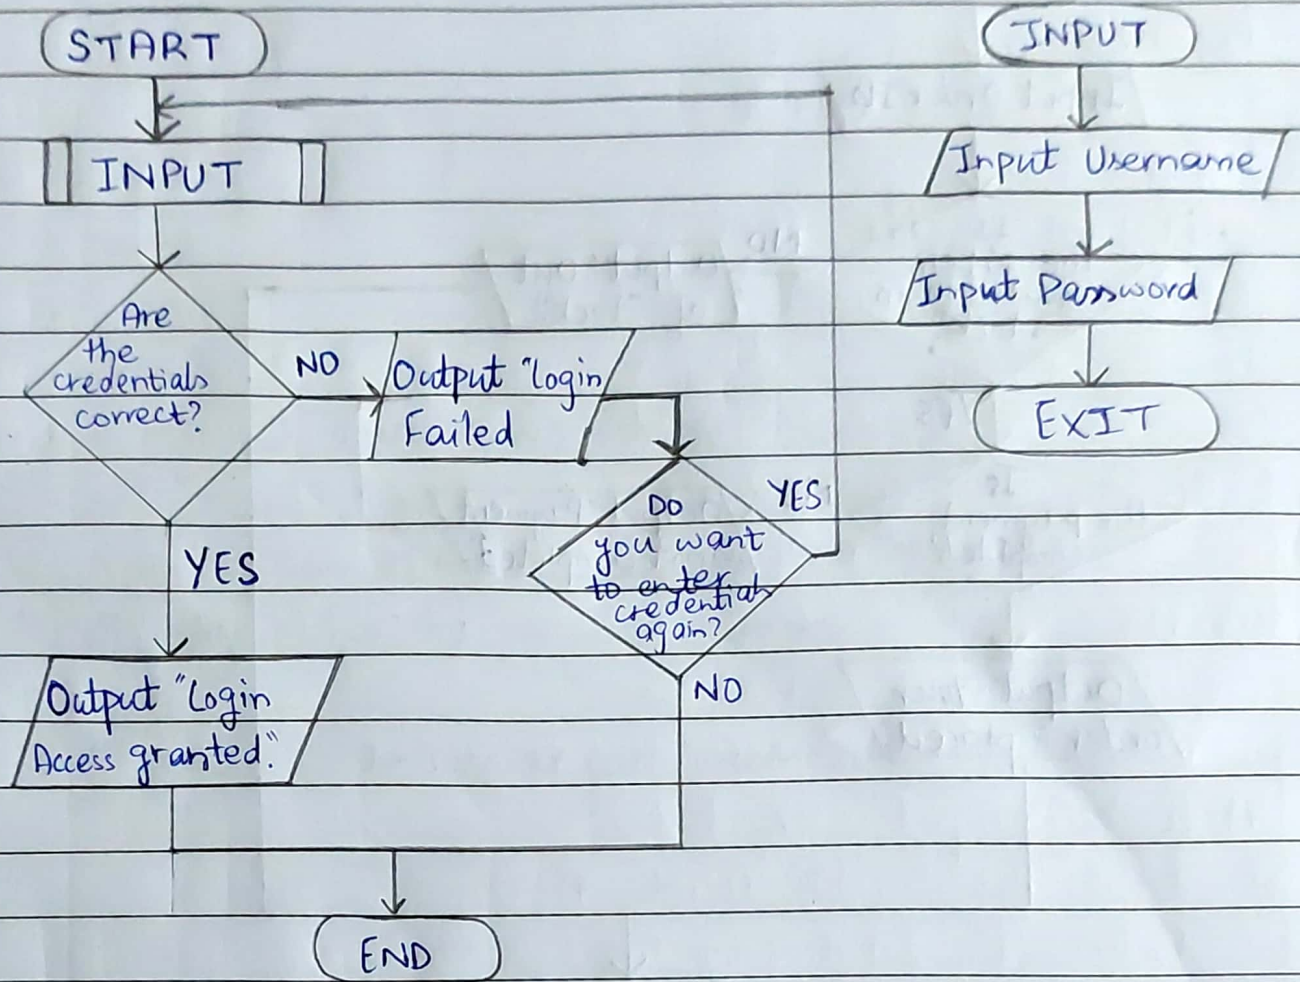 START
INPUT
Are
the
credentials
correct?
NO
Output "login
Failed
DO
you want
to enter
credential
again?
YES
NO
YES
Output "Login
Access granted."
END
INPUT
Input Username
Input Password
EXIT